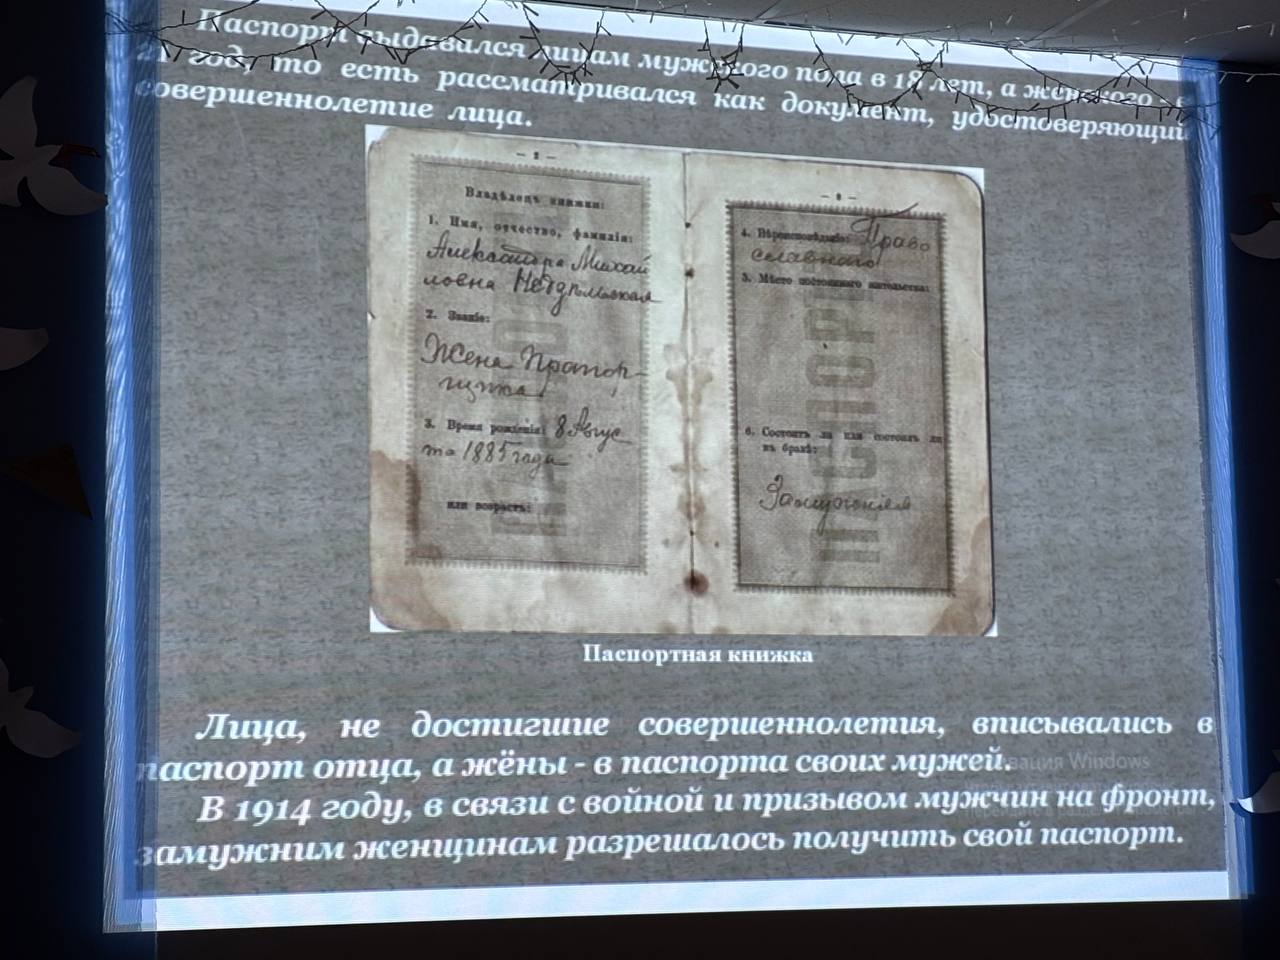 Паспорт выдавался лицам мужского пола в 18 лет, а женского - в
21 год, то есть рассматривался как документ, удостоверяющий
совершеннолетие лица.
Владѣлецъ книжки:
1. Имя, отчество, фамилія:
Александра Михай
ловна
2. Званіе:
Жена Прапор-
щика
3. Время рожденія: 8 Авгус
та 1885 года
или возрастъ:
4. Вѣроисповѣданіе: Право
славного
5. Мѣсто постояннаго жительства:
6. Состоитъ ли или состоялъ ли
въ бракѣ:
Замужняя
ПАСПОРТ
Паспортная книжка
Лица, не достигшие совершеннолетия, вписывались в
паспорт отца, а жёны - в паспорта своих мужей.
Windows
В 1914 году, в связи с войной и призывом мужчин на фронт,
замужним женщинам разрешалось получить свой паспорт.